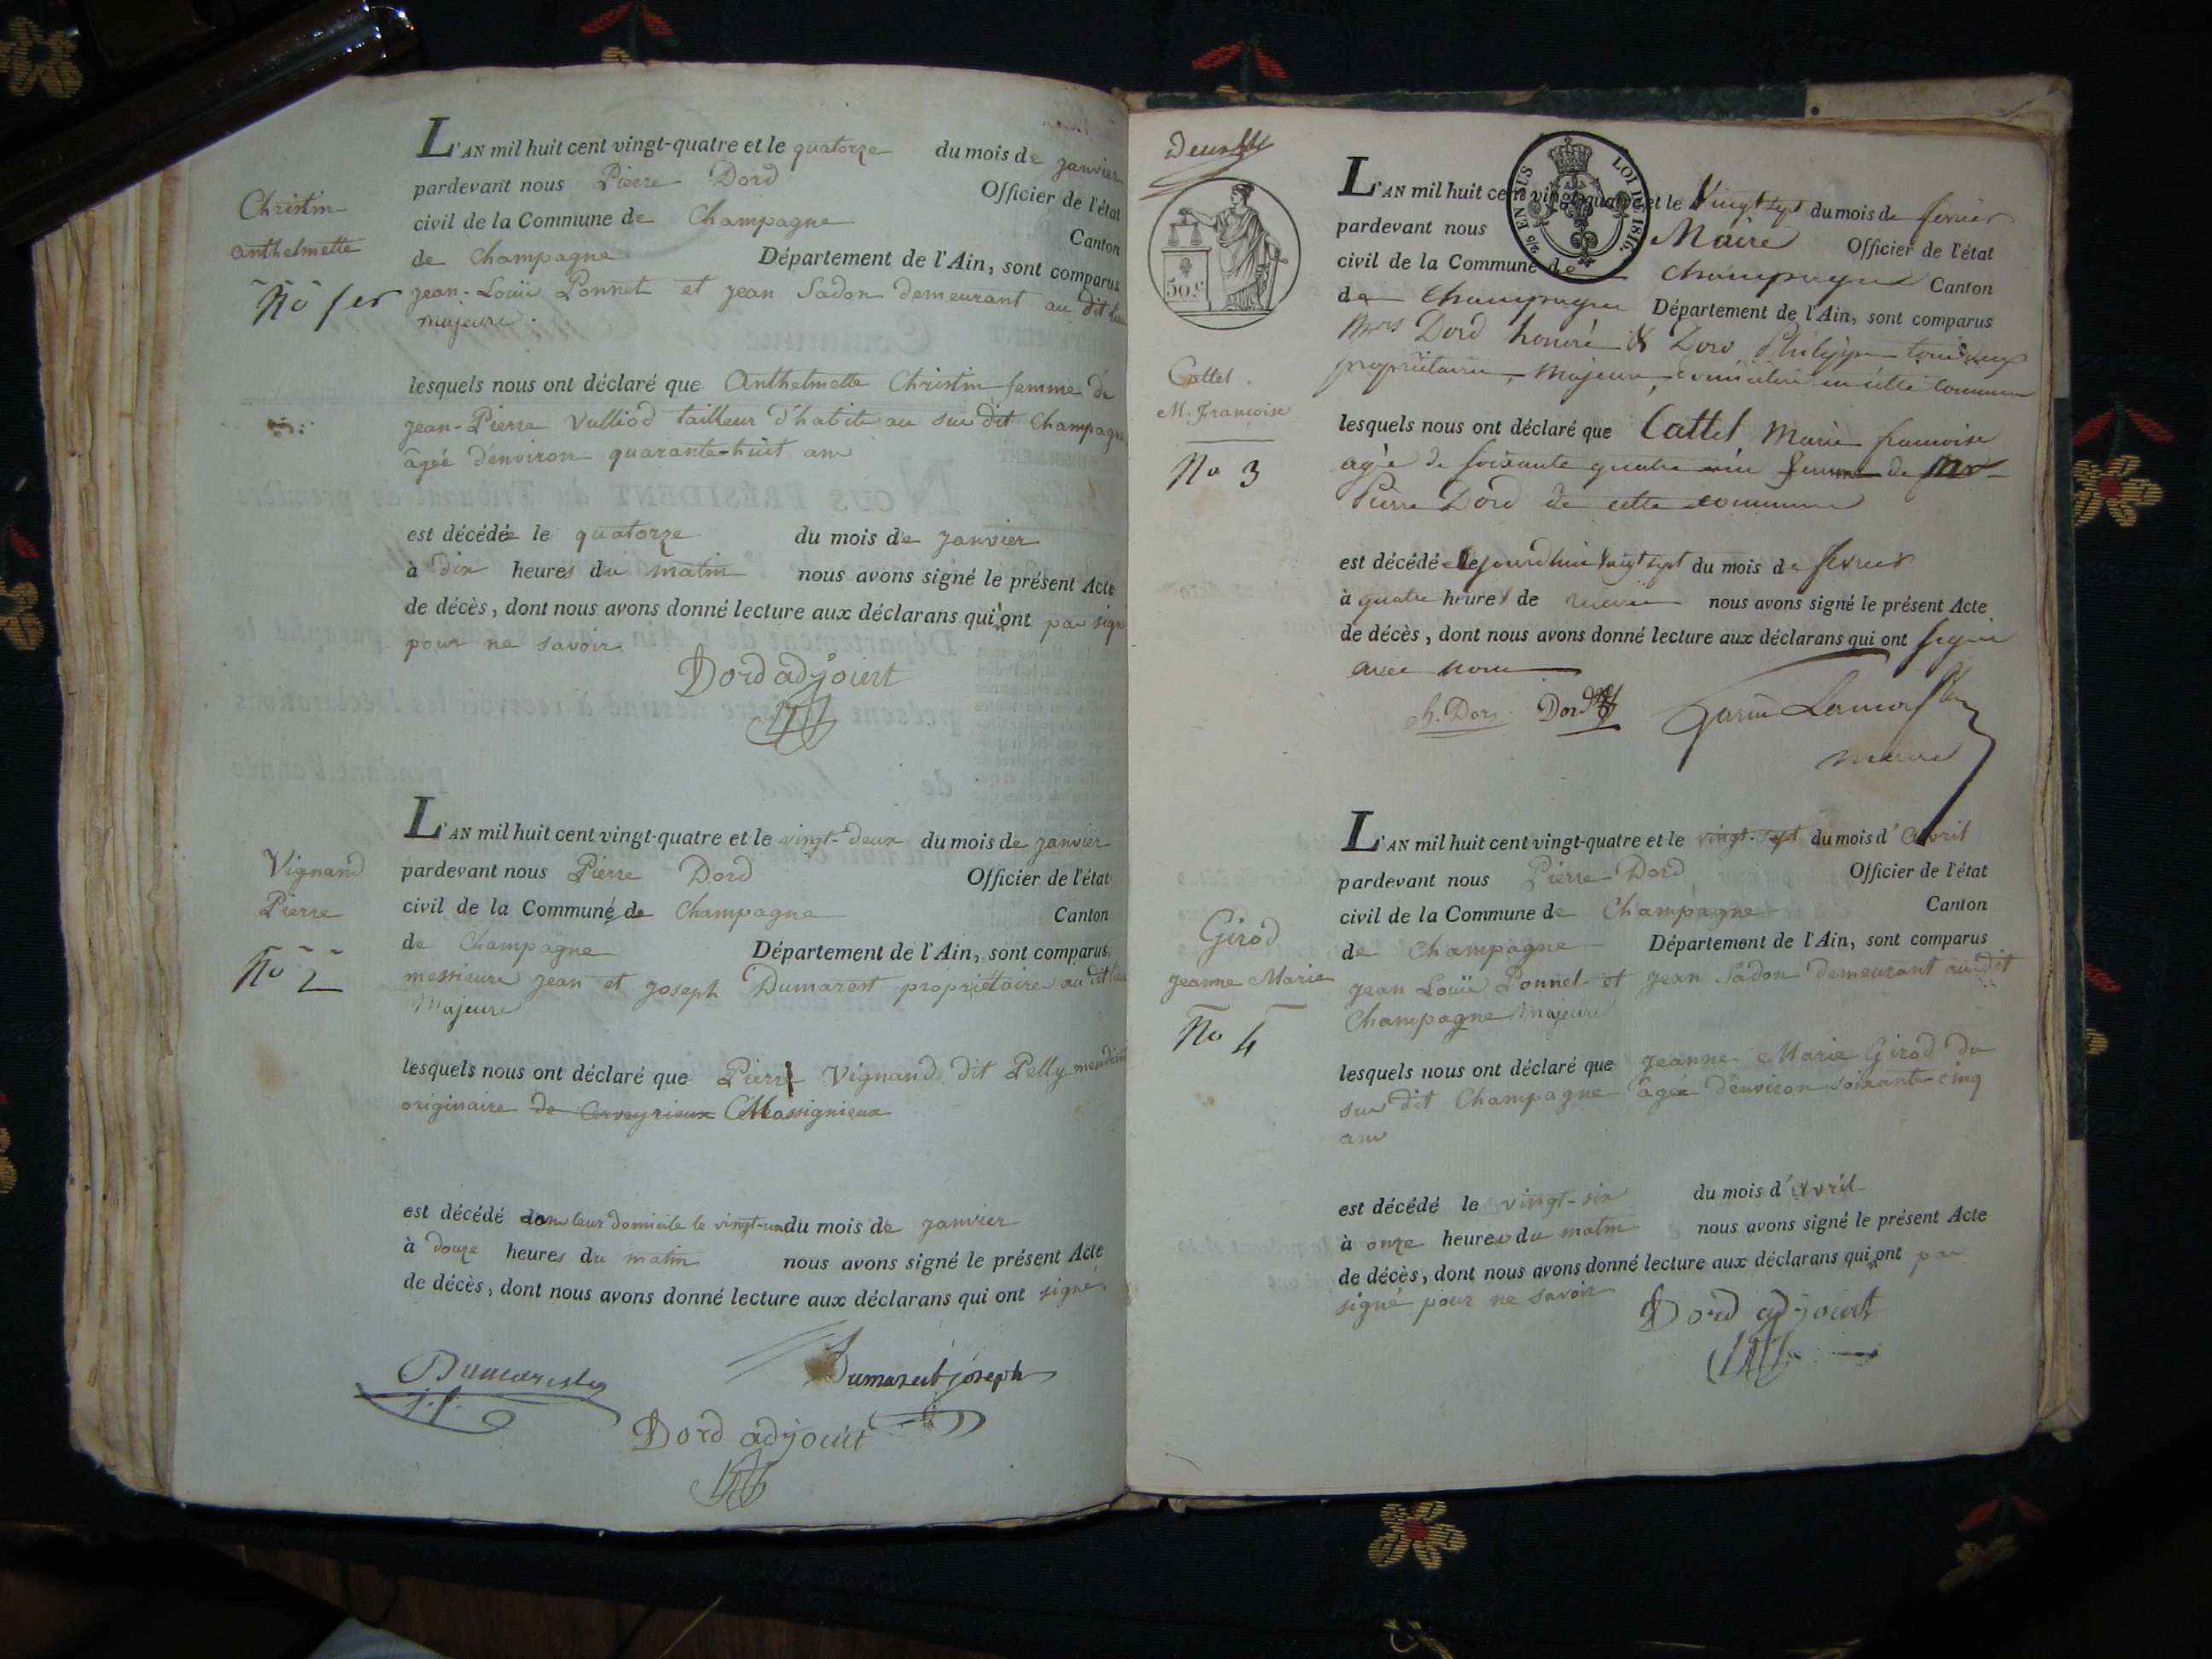 Christin
anthelmette
No 1er
L'AN mil huit cent vingt-quatre et le quatorze du mois de janvier
pardevant nous Pierre Dord Officier de l'état
civil de la Commune de Champagne Canton
de Champagne Département de l'Ain, sont comparus
jean-Louïs Ponnet et jean Sadon demeurant au dit lieu
majeurs.
lesquels nous ont déclaré que Anthelmette Christin femme de
jean-Pierre Vulliod tailleur d'habits au sus dit Champagne
âgée d'environ quarante-huit ans
est décédée le quatorze du mois de janvier
à dix heures du matin nous avons signé le présent Acte
de décès, dont nous avons donné lecture aux déclarans qui n'ont pas signé
pour ne savoir
Dord adjoint
Vignand
Pierre
No 2
L'AN mil huit cent vingt-quatre et le vingt-deux du mois de janvier
pardevant nous Pierre Dord Officier de l'état
civil de la Commune de Champagne Canton
de Champagne Département de l'Ain, sont comparus
messieurs jean et joseph Dumarest propriétaires au dit lieu
Majeurs
lesquels nous ont déclaré que Pierre Vignand dit Pelly mendiant
originaire de Cerveyrieux Massignieux
est décédé dans leur domicile le vingt-un du mois de janvier
à douze heures du matin nous avons signé le présent Acte
de décès, dont nous avons donné lecture aux déclarans qui ont signé
Dumarest
Dumarest joseph
Dord adjoint
50 c
EN SUS LOI DE 1816.
Cattel
M. Francoise
No 3
L'AN mil huit cent vingt-quatre et le Vingt sept du mois de fevrier
pardevant nous Maire Officier de l'état
civil de la Commune de Champagne Canton
de Champagne Département de l'Ain, sont comparus
Mrs Dord honoré & Dord Philippe tous deux
propriétaires, Majeurs, domiciliés en cette commune
lesquels nous ont déclaré que Cattel Marie francoise
agée de soixante quatre ans femme de Mr
Pierre Dord de cette commune
est décédée le jourd'hui vingt sept du mois de fevrier
à quatre heures de nous avons signé le présent Acte
de décès, dont nous avons donné lecture aux déclarans qui ont signé
avec nous
ph. Dord Dord
maire
Girod
jeanne Marie
No 4
L'AN mil huit cent vingt-quatre et le vingt-sept du mois d'avril
pardevant nous Pierre Dord Officier de l'état
civil de la Commune de Champagne Canton
de Champagne Département de l'Ain, sont comparus
jean Louïs Ponnet et jean Sadon demeurant au dit
Champagne Majeurs
lesquels nous ont déclaré que jeanne Marie Girod du
sus dit Champagne âgée d'environ soixante-cinq
ans
est décédé le vingt-six du mois d'avril
à onze heures du matin nous avons signé le présent Acte
de décès, dont nous avons donné lecture aux déclarans qui n'ont pas
signé pour ne savoir
Dord adjoint